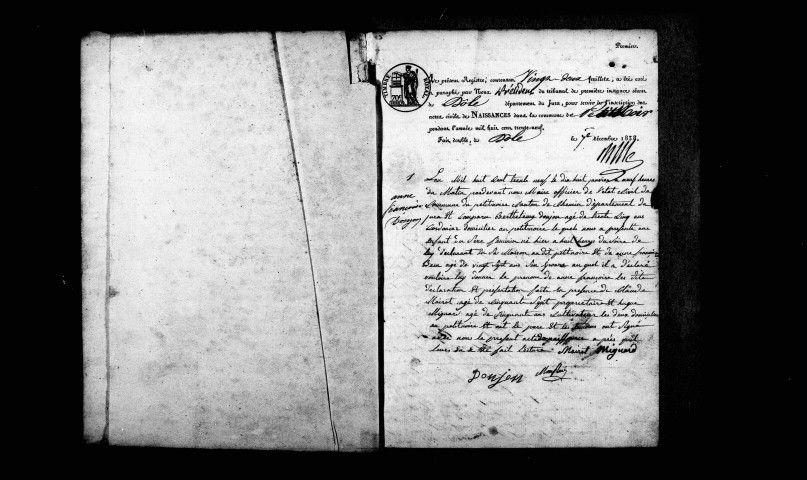 Premier.
TIMBRE ROYAL
Le présent Registre, contenant Vingt-deux feuillets, a été coté
et paraphé par Nous Président du tribunal de première instance séant
de Dole département du Jura, pour servir à l'inscription des
actes civils de NAISSANCES dans la commune de Petit Noir
pendant l'année mil huit cent trente-neuf.
Fait, double, à Dole le 7e décembre 1838.
1
anne
francoise
Doujon
L'an Mil huit Cent trente neuf le dix huit janvier à neuf heures
du Matin pardevant nous Maire officier de l'etat Civil de la
Commune du petitnoire Canton de Chemin département du
jura Et Comparu Berthelemy doujon agé de trente Cinq ans
Cordonier domicilier au petitnoire le quel nous a presenté une
Enfant du Sexe feminin né hier a huit heures du Soire de
luy declarant En Sa Maison au dit petitnoire Et de anne francoise
agé de vingt Sept ans Son Epouse au quel il a déclaré
vouloire luy donner le prenom de anne francoise les dite
declaration Et presentation faite En presence de Claude
Mairot agé de Cinquante Sept proprietaire Et hugue
Mignard agé de Cinquante ans Cultivateur les deux domicilier
au petitnoire Et ont le pere Et les temoin ont Signé
avec nous le present acte de naissance a près quil
leurs En à Eté fait lecture Mairot Mignard
Doujon